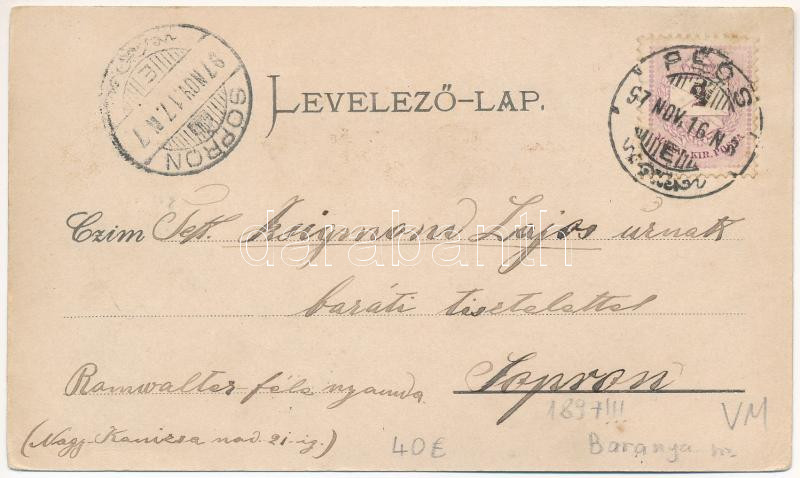 SOPRON
97 NOV. 17. N. 7
E
LEVELEZŐ-LAP.
PÉCS
97 NOV. 16. N
E
KIR. POSTA
Czim Tek. Lajos urnak
baráti tisztelettel
Romwalter féle nyomda Sopron
(Nagy-Kanizsa nov 21-ig.)
1897!!!
40€
Baranya m.
VM
darabanth